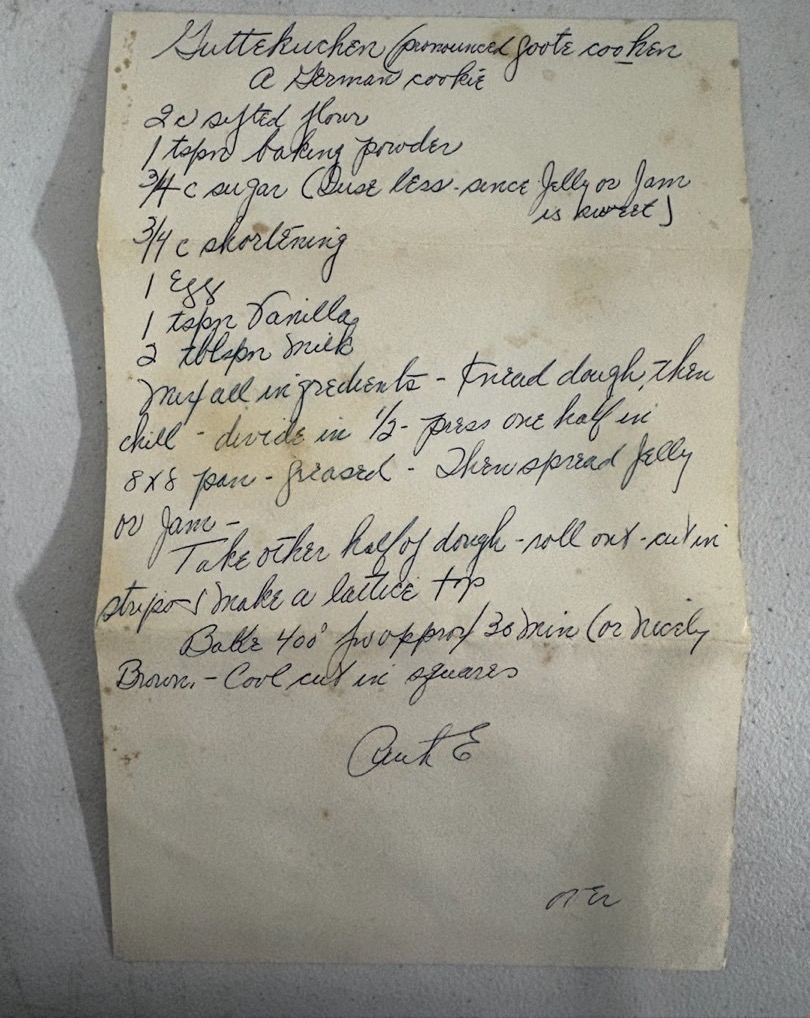 Guttekuchen (pronounced goote cooken
A German cookie
2 c sifted flour
1 tspn baking powder
3/4 c sugar (I use less - since Jelly or Jam
is sweet)
3/4 c shortening
1 Egg
1 tspn Vanilla
2 tblspn Milk
Mix all ingredients - Knead dough, then
chill - divide in 1/2 - press one half in
8 x 8 pan - greased - Then spread Jelly
or Jam -
Take other half of dough - roll out - cut in
strips & make a lattice top
Bake 400° for approx 30 min (or nicely
Brown. - Cool cut in squares
Ruth E
over